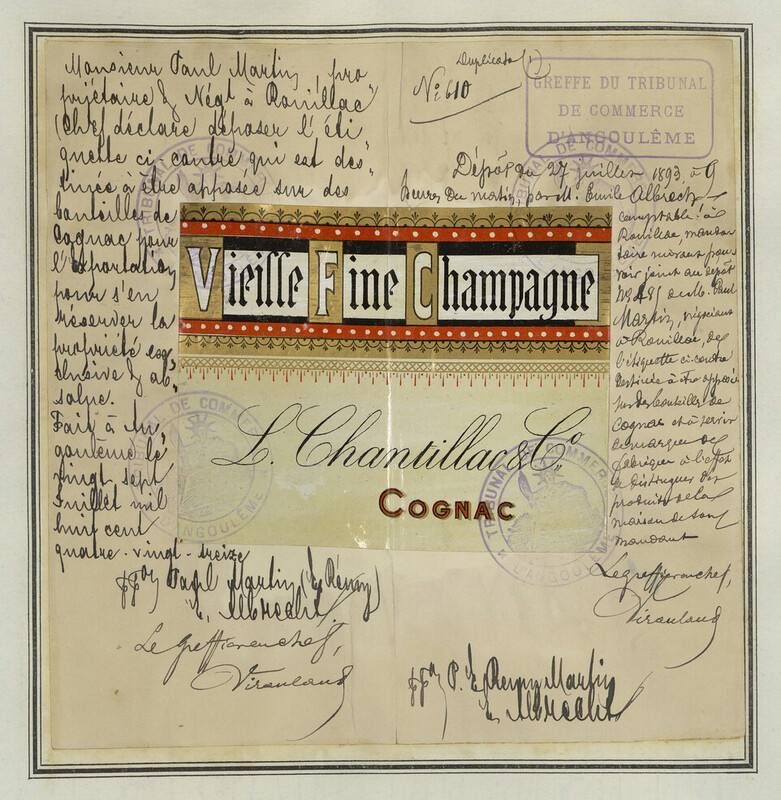 Monsieur Paul Martin, pro
priétaire & Négt à Rouillac
(Chef déclare déposer l'éti
quette ci-contre qui est des-
tinée à être apposée sur des
bouteilles de
Cognac pour
l'Exportation
pour s'en
réserver la
propriété ex-
clusive & ab-
solue.
Fait à An
goulême le
vingt sept
Juillet mil
huit cent
quatre-vingt-treize
ppon Paul Martin (E. Rémy)
E. Albrecht
Le greffier en chef,
Viraulaud
Duplicata (1)
No 610
GREFFE DU TRIBUNAL
DE COMMERCE
D'ANGOULÊME
Dépôt du 27 juillet 1893, à 9
heures du matin, par M. Emile Albrecht
comptable à
Rouillac, manda
taire suivant pou
voir joint au dépôt
No 485 de M. Paul
Martin, négociant
à Rouillac, de
l'étiquette ci-contre
destinée à être apposée
sur des bouteilles de
cognac et à servir
de marque de
fabrique à l'effet
de distinguer les
produits de la
maison de son
mandant
Le greffier en chef,
Viraulaud
ppon P. E. Remy Martin
E. Albrecht
Vieille Fine Champagne
L. Chantillac & Co.
COGNAC
TRIBUNAL DE COMMERCE
D'ANGOULÊME